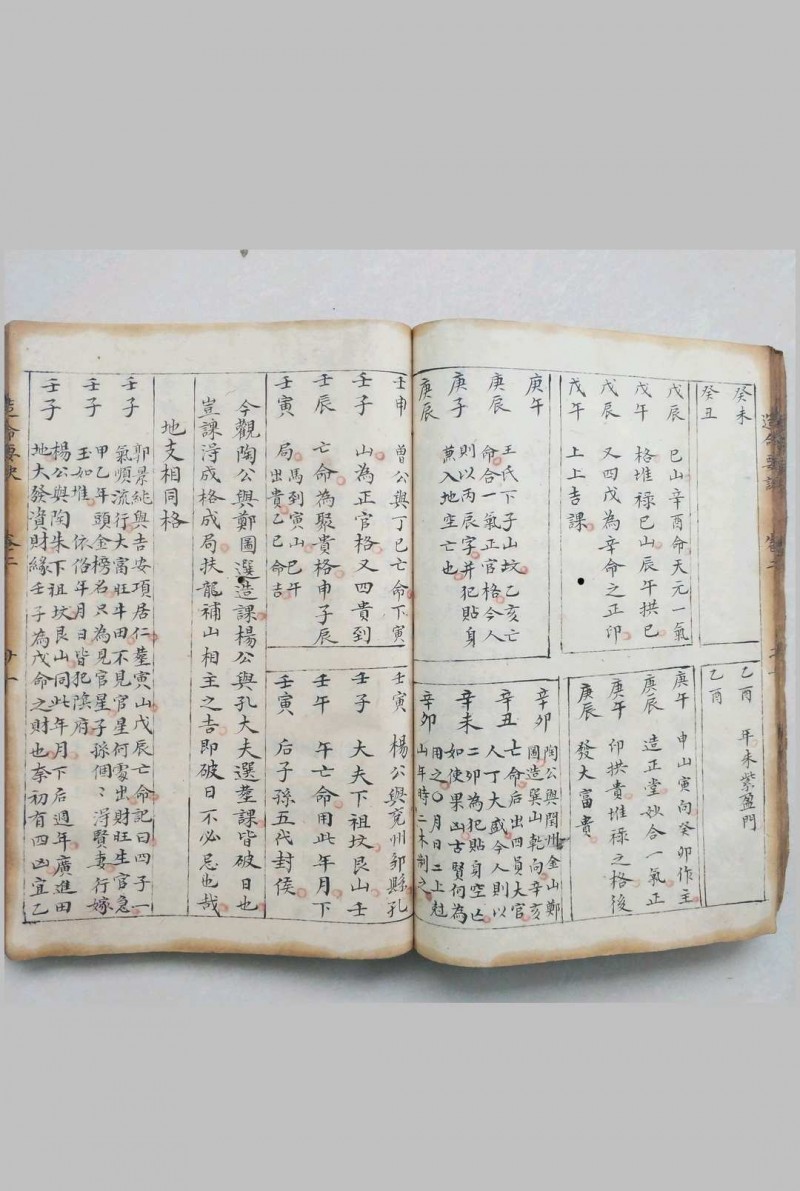 癸未
癸丑
乙酉 年未紫盈門
乙酉
戊辰 巳山辛酉命天元一氣
戊午 格堆祿巳山辰午拱巳
戊辰 又四戊為辛命之正印
戊午 上上吉課
庚午 申山寅向癸卯作主
庚辰 造正堂妙合一氣正
庚午 印拱貴堆祿之格後
庚辰 發大富貴
庚午 王氏下子山坟乙亥亡
庚辰 命合一氣正官格今人
庚子 則以丙辰字并犯貼身
庚辰 黄入地空亡也
辛卯 陶公與閏州金山鄭
圖造巽山乾向辛亥
辛丑 亡命后出四員大官
人丁大盛今人則以
辛未 二卯為犯貼身空亡
如使果凶古賢何為
辛卯 用之〇月日二上尅
山年時二木制之
壬申 曾公與丁巳亡命下寅
壬子 山為正官格又四貴到
壬辰 亡命為聚貴格申子辰
壬寅 局馬到寅山巳午
出貴乙巳命吉
壬寅 楊公與兖州邹縣孔
壬子 大夫下祖坟艮山壬
壬午 午亡命用此年月下
壬寅 后子孫五代封侯
今觀陶公與鄭圖選造課楊公與孔大夫選塟課皆破日也
豈課淂成格成局扶龍補山相主之吉即破日不必忌也哉
地支相同格
壬子 郭景純與吉安項居仁塟寅山戊辰亡命記曰四子一
氣順流行大富旺牛田不見官星何處出財旺生官急
壬子 甲乙年頭金榜名只為見官星子孫個〻淂賢妻行嫁
玉如堆 依俗年月日皆犯隂府
壬子 楊公與陶朱下祖坟艮山同此年月下后週年廣進田
地大發資財緣壬子為戊命之財也奈初有四凶宜乙
造命要訣 卷二 廿一